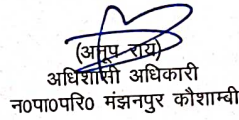 (अनूप राय)
अधिशासी अधिकारी
न०पा०परि० मंझनपुर कौशाम्वी